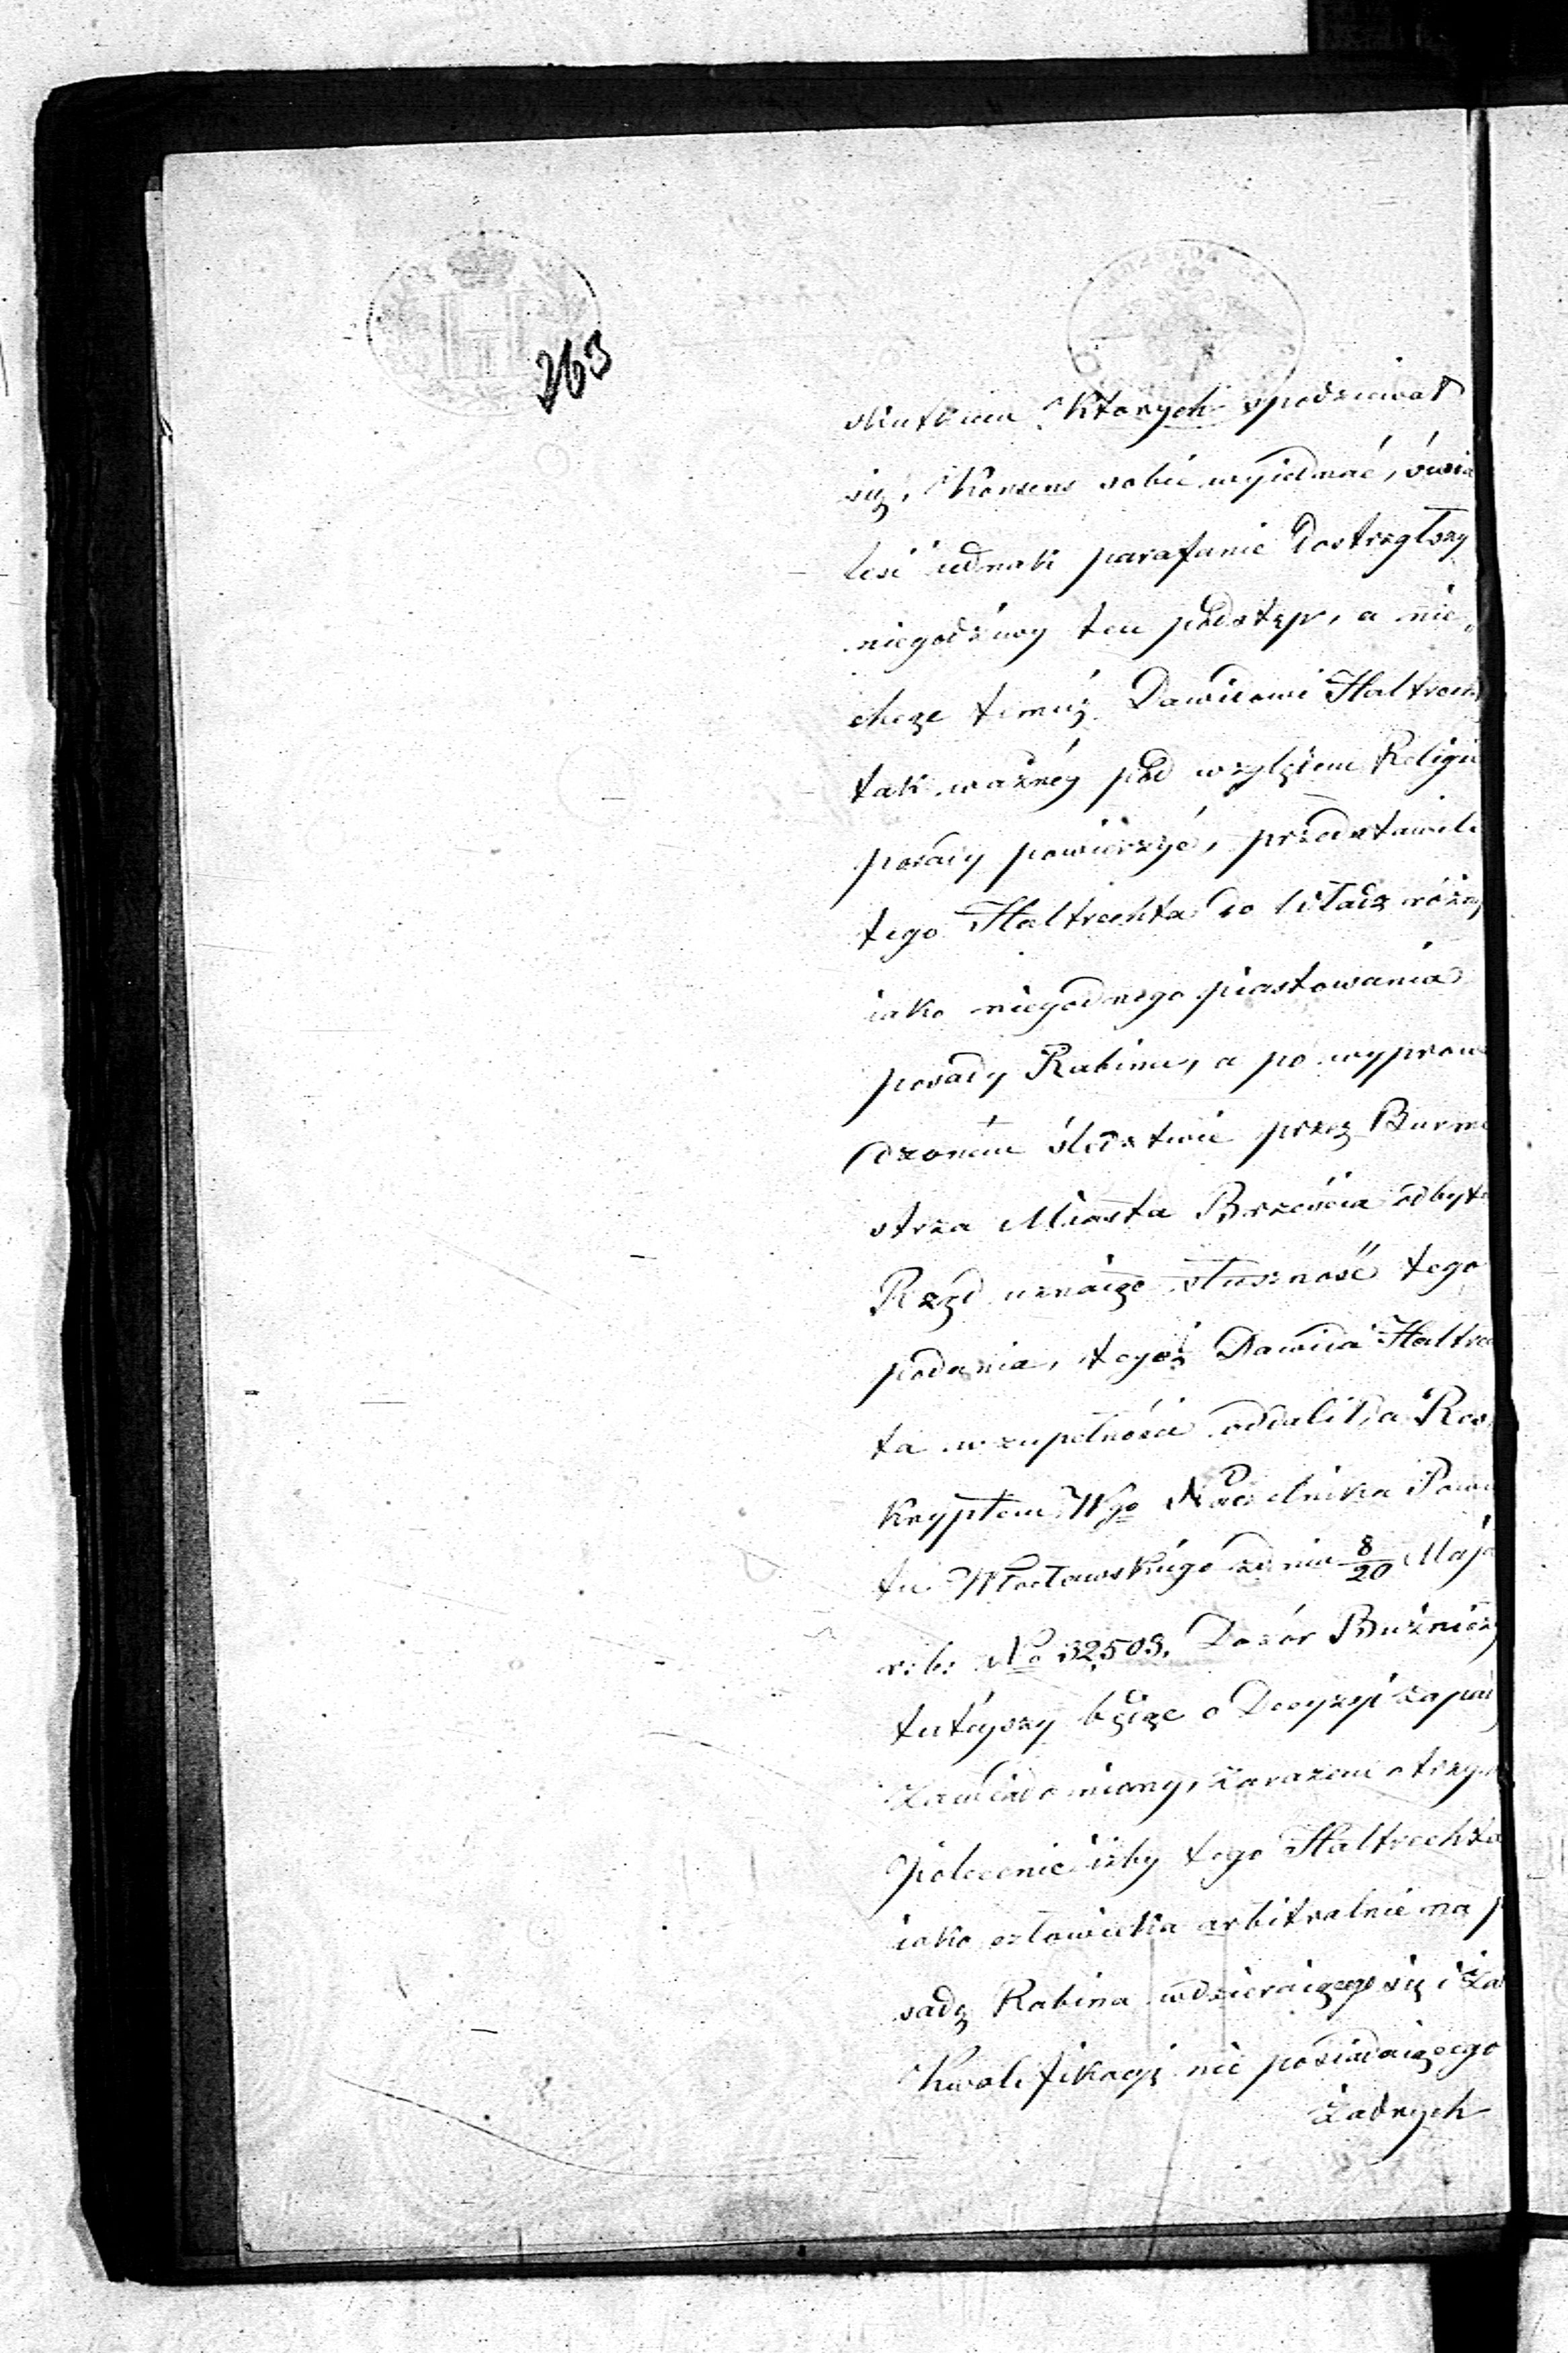 263
skutkiem których spodziewał
się, Konsens sobie wyiednać, świa
tlesi iednak parafianie dostrzegłszy
niegodziwy ten podstęp, a nie
chcąc temuż Dawidowi Haltrech
tak ważnéy pod względem Religii
posady powierzyć, przedstawili
tego Haltrechta do Władz różny
iako niegodnego piastowania
posady Rabina, a po wyprowa
dzoném śledztwie przez Burmi
strza Miasta Brześcia odbyt
Rząd uznaiąc słuszność tego
podania, tegoż Dawida Haltrech
ta w zupełności oddalił, a Res
kryptem Wgo Naczelnika Powia
tu Włocławskiego z dnia 8/20 Maja
r: b: No 32,503. Dozór Bużniczy
tutéyszy będąc o Decyzyi zapad
zawiadomiony, zarazem otrzym
polecenie iżby tego Haltrechta
iako człowieka arbitralnie na p
sadę Rabina wdzieraiącego się i za
Kwalifikacyi nie posiadaiącego
żadnych